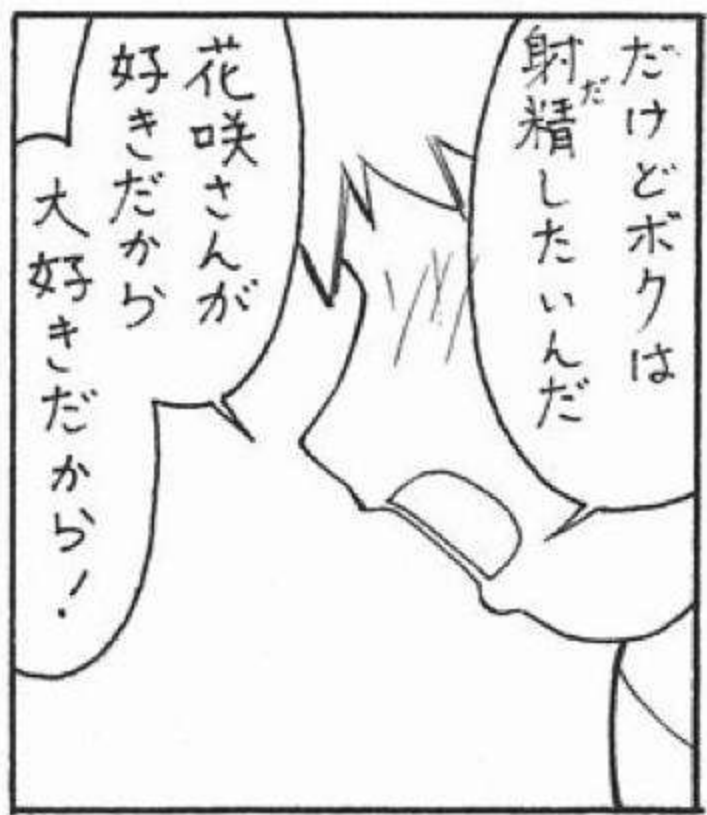 だけどボクは
射精したいんだ
だ
花咲さんが
好きだから
大好きだから!